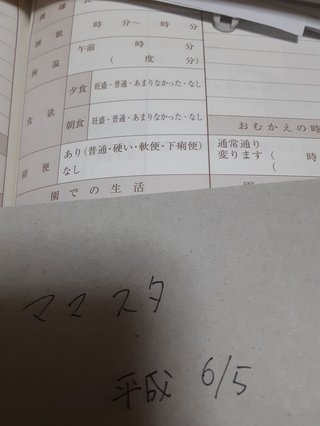 睡眠 時 分～ 時 分
検温 午前 時 分
( 度 分)
食欲 夕食 旺盛・普通・あまりなかった・なし
朝食 旺盛・普通・あまりなかった・なし
おむかえの時
排便 あり(普通・硬い・軟便・下痢便)
なし
通常通り
変ります ( 時
(
園での生活
ママスタ
平成 6/5